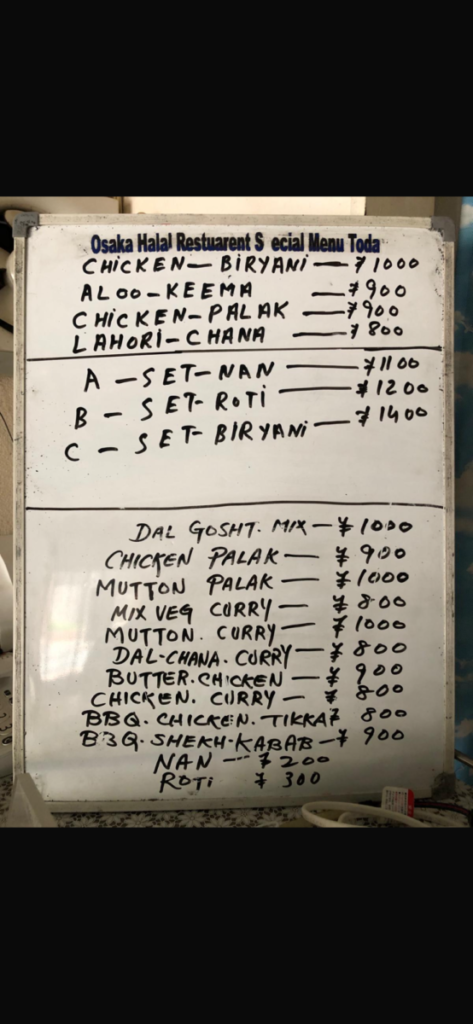 Osaka Halal Restuarent S ecial Menu Toda
CHICKEN — BIRYANI — ¥1000
ALOO - KEEMA — ¥900
CHICKEN - PALAK — ¥900
LAHORI - CHANA — ¥800
A - SET - NAN — ¥1100
B - SET - ROTI — ¥1200
C - SET - BIRYANI — ¥1400
DAL GOSHT. MIX — ¥1000
CHICKEN PALAK — ¥900
MUTTON PALAK — ¥1000
MIX VEG CURRY — ¥800
MUTTON. CURRY — ¥1000
DAL-CHANA. CURRY — ¥800
BUTTER. CHICKEN — ¥900
CHICKEN. CURRY — ¥800
BBQ. CHICKEN. TIKKA ¥800
BBQ. SHEKH-KABAB — ¥900
NAN --- ¥200
ROTI ¥300